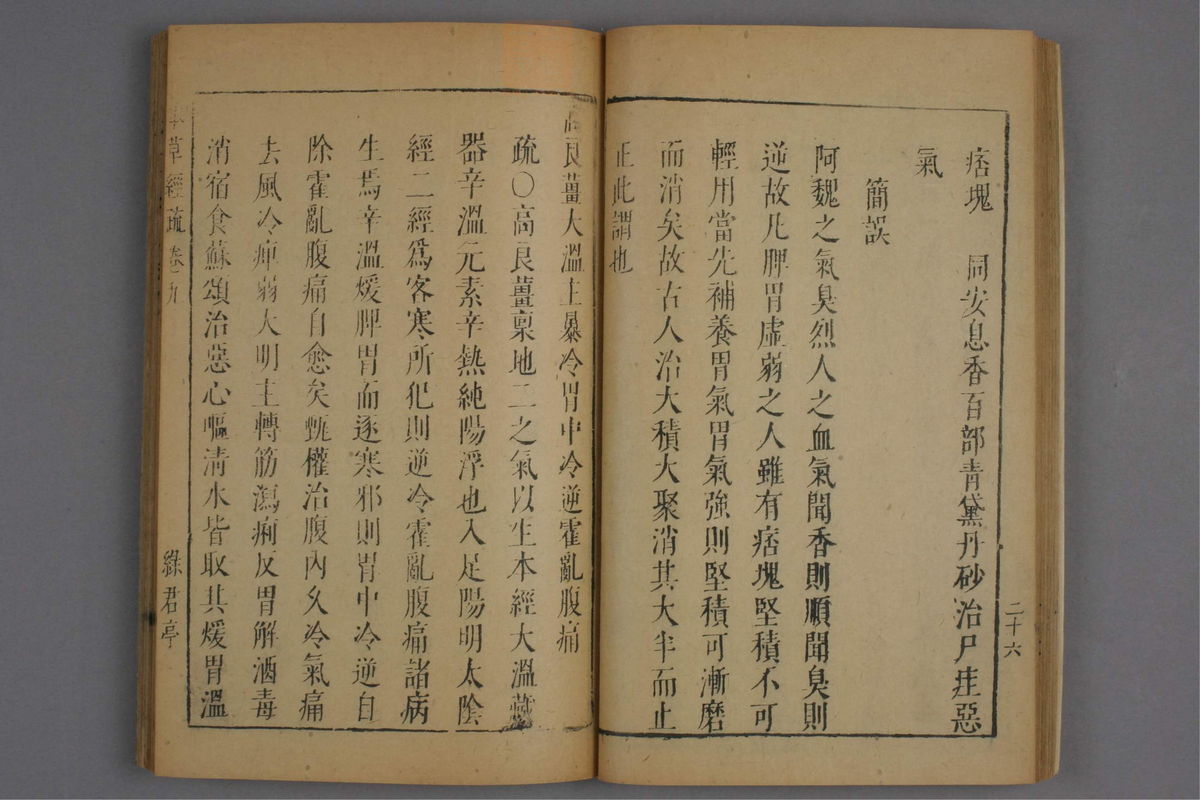 痞塊　同安息香百部青黛丹砂治尸疰惡
氣
簡誤
阿魏之氣臭烈人之血氣聞香則順聞臭則
逆故凡脾胃虛弱之人雖有痞塊堅積不可
輕用當先補養胃氣胃氣強則堅積可漸磨
而消矣故古人治大積大聚消其大半而止
正此謂也
二十六
高良薑大溫主暴冷胃中冷逆霍亂腹痛
疏○高良薑稟地二之氣以生本經大溫藏
器辛溫元素辛熱純陽浮也入足陽明太陰
經二經爲客寒所犯則逆冷霍亂腹痛諸病
生焉辛溫煖脾胃而逐寒邪則胃中冷逆自
除霍亂腹痛自愈矣甄權治腹內久冷氣痛
去風冷痺弱大明主轉筋瀉痢反胃解酒毒
消宿食蘇頌治惡心嘔清水皆取其煖胃溫
本草經疏卷之九
綠君亭